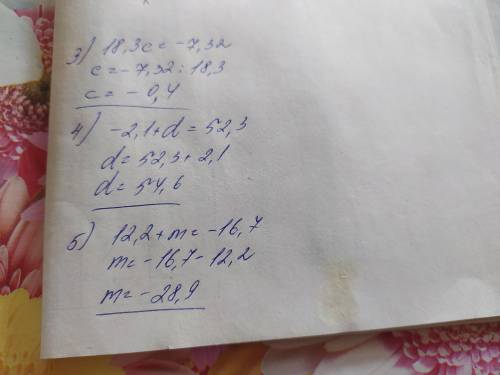 3) 18,3c = -7,32
c = -7,32 : 18,3
c = -0,4
4) -2,1+d = 52,3
d = 52,3 + 2,1
d = 54,6
5) 12,2 + m = -16,7
m = -16,7 - 12,2
m = -28,9